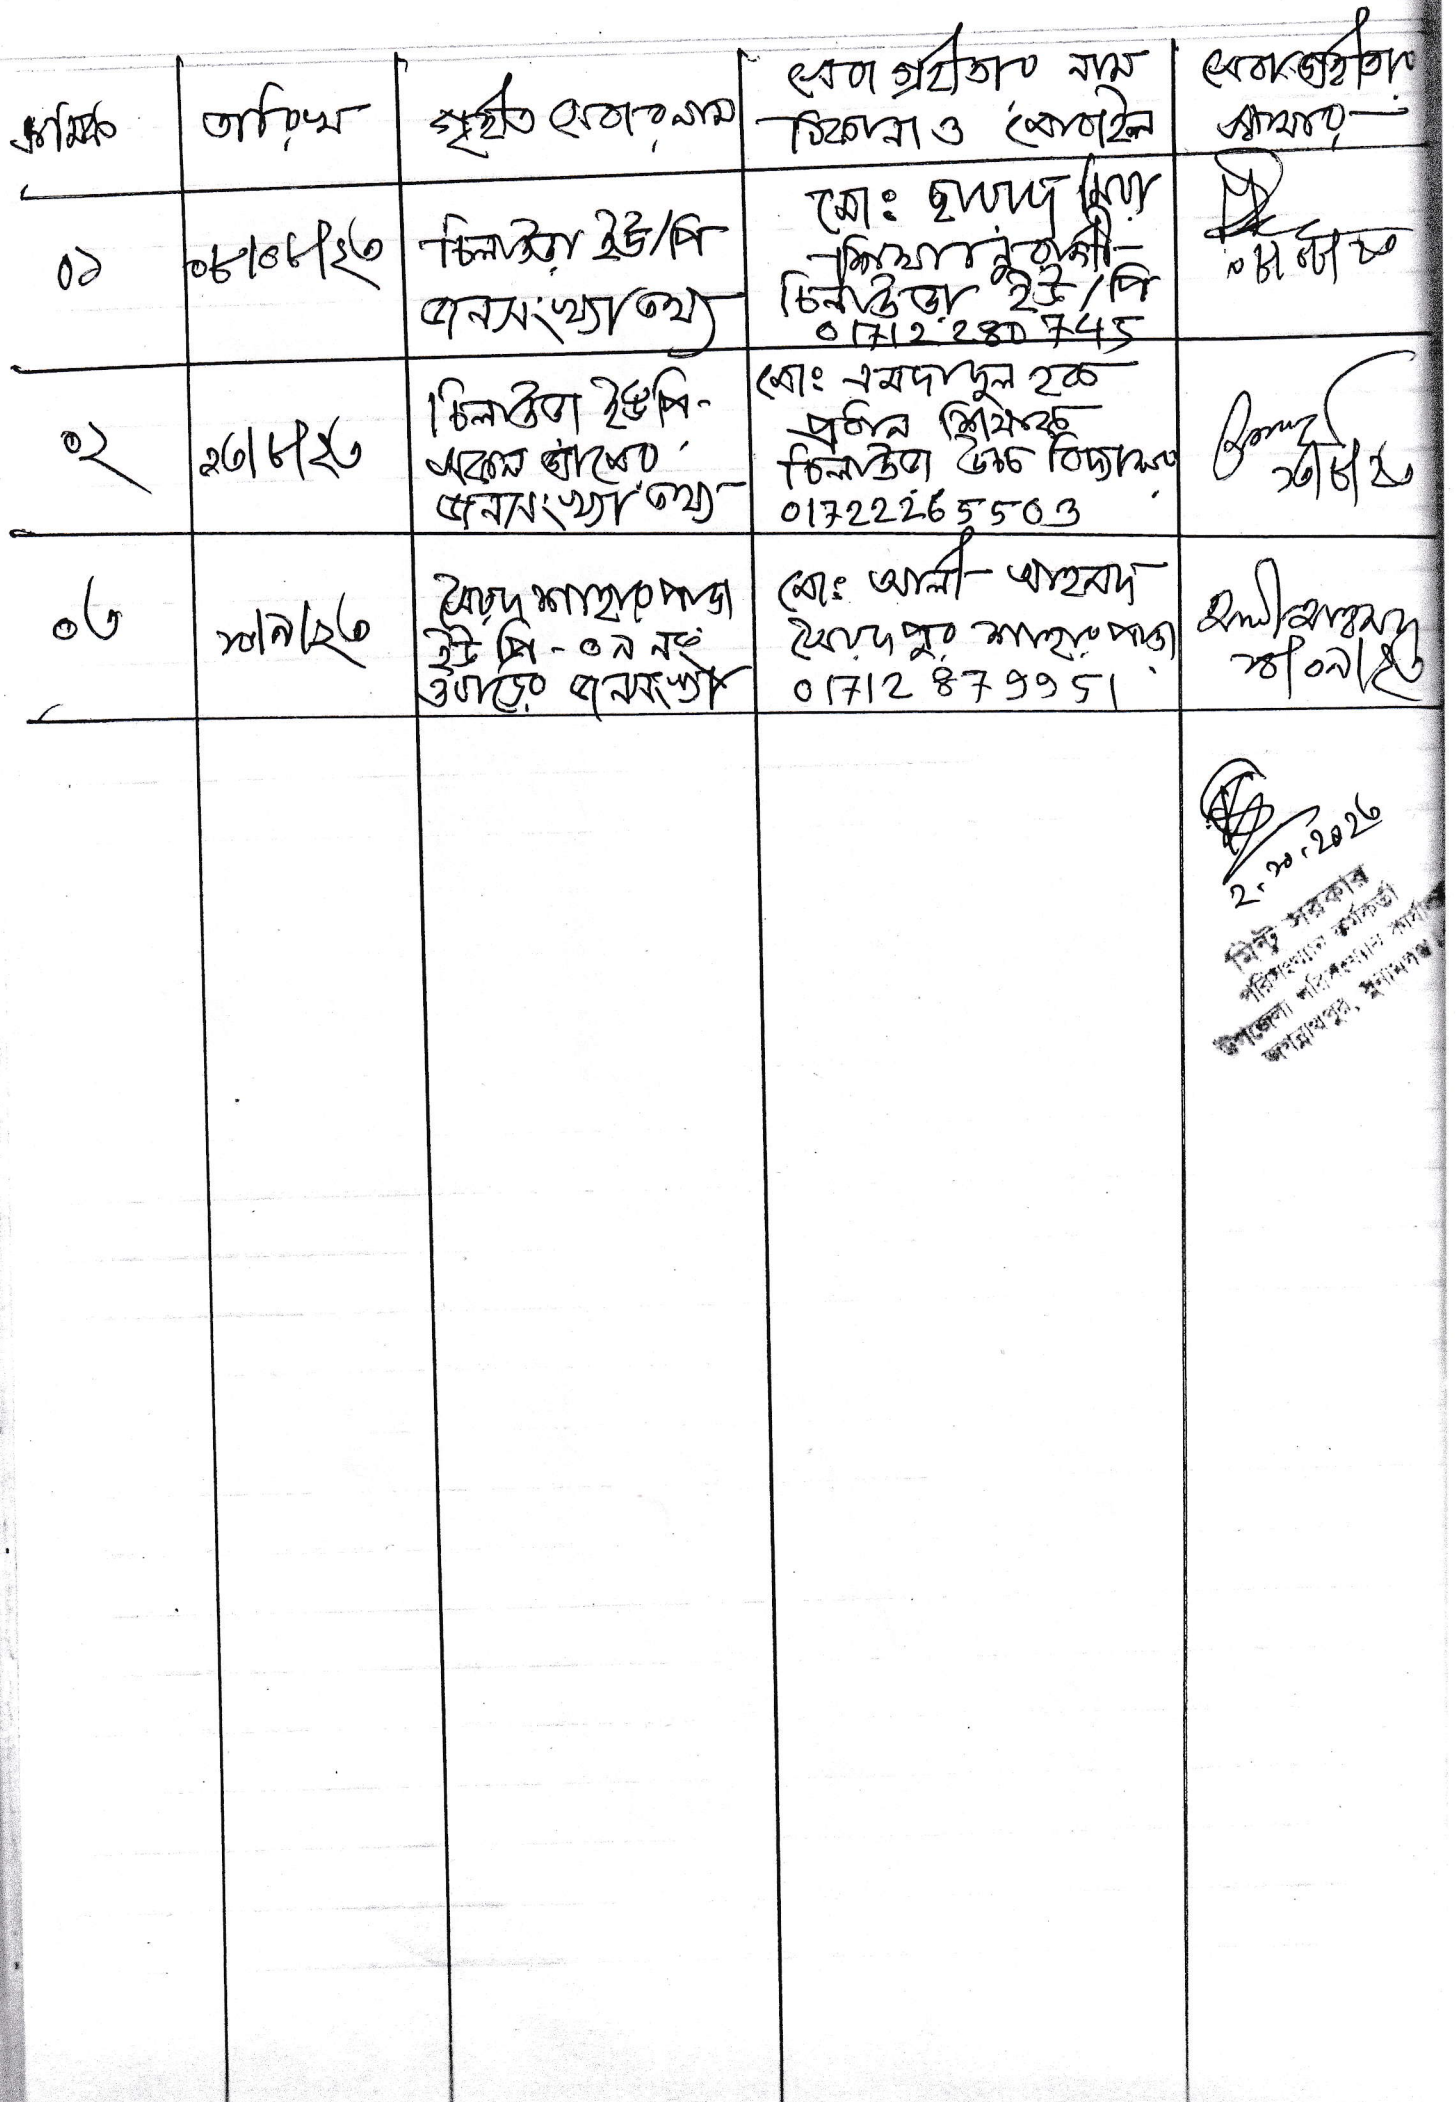 ক্রমিক
তারিখ
গৃহীত সেবার নাম
সেবা গ্রহীতার নাম
ঠিকানা ও মোবাইল
সেবা গ্রহীতার
স্বাক্ষর
০১
০৮/০৮/২৩
চিলাউড়া ইউ/পি
জনসংখ্যা তথ্য
মোঃ ছাদাদ মিয়া
চিলাউড়া ইউ/পি
01712280745
০২
চিলাউড়া ইউপি
সকল গ্রামের
জনসংখ্যা তথ্য
মোঃ এমদাদুল হক
প্রধান শিক্ষক
চিলাউড়া উচ্চ বিদ্যালয়
01722265503
০৩
সৈয়দ শাহারপাড়া
ইউপি - ০৯ নং
ওয়ার্ডের জনসংখ্যা
মোঃ আলী আহমদ
সৈয়দপুর শাহারপাড়া
01712879951
আলী আহমদ
২.১০.২০২৩
মিন্টু সরকার
পরিসংখ্যান কর্মকর্তা
উপজেলা পরিসংখ্যান কার্যালয়
জগন্নাথপুর, সুনামগঞ্জ